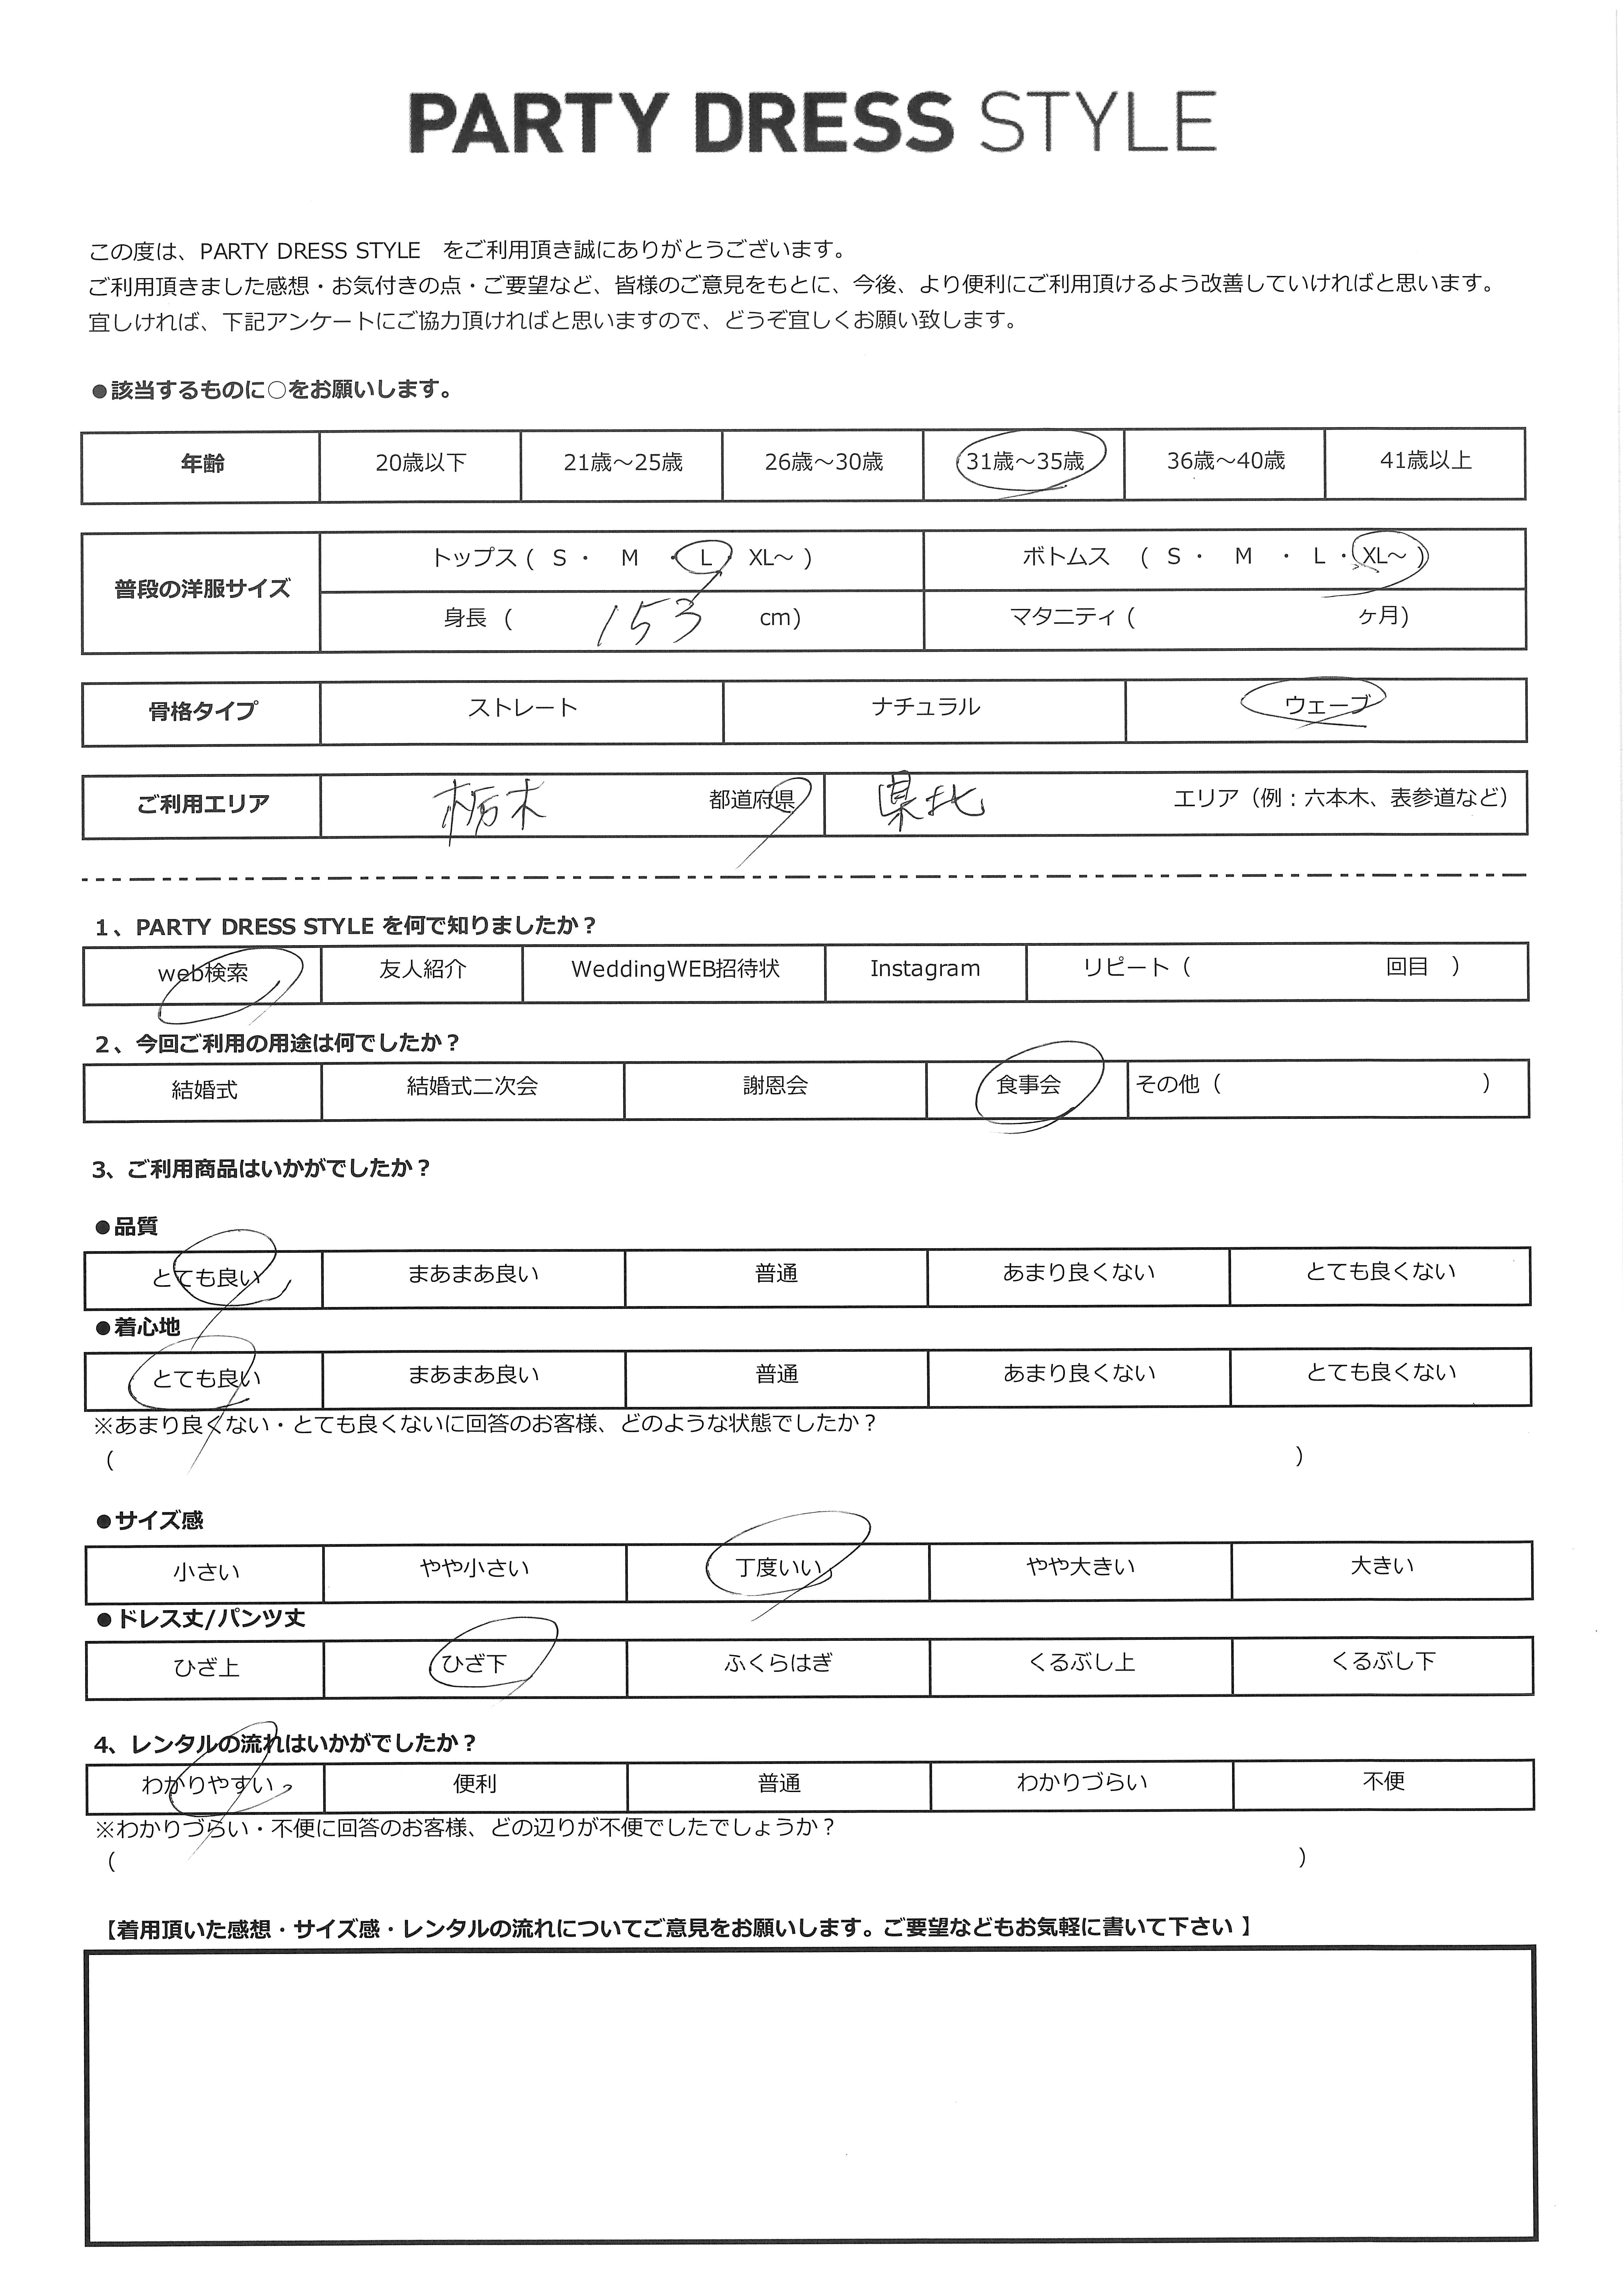 PARTY DRESS STYLE
この度は、PARTY DRESS STYLE　をご利用頂き誠にありがとうございます。
ご利用頂きました感想・お気付きの点・ご要望など、皆様のご意見をもとに、今後、より便利にご利用頂けるよう改善していければと思います。
宜しければ、下記アンケートにご協力頂ければと思いますので、どうぞ宜しくお願い致します。
●該当するものに○をお願いします。
年齢 20歳以下 21歳～25歳 26歳～30歳 31歳～35歳 36歳～40歳 41歳以上
普段の洋服サイズ トップス ( S ・ M ・ L ・ XL～ ) ボトムス ( S ・ M ・ L ・ XL～ )
身長 ( 153 cm) マタニティ ( ヶ月)
骨格タイプ ストレート ナチュラル ウェーブ
ご利用エリア 栃木 都道府県 県北 エリア（例：六本木、表参道など）
1、PARTY DRESS STYLE を何で知りましたか？
web検索 友人紹介 WeddingWEB招待状 Instagram リピート（ 回目 ）
2、今回ご利用の用途は何でしたか？
結婚式 結婚式二次会 謝恩会 食事会 その他（ ）
3、ご利用商品はいかがでしたか？
●品質
とても良い まあまあ良い 普通 あまり良くない とても良くない
●着心地
とても良い まあまあ良い 普通 あまり良くない とても良くない
※あまり良くない・とても良くないに回答のお客様、どのような状態でしたか？
（ ）
●サイズ感
小さい やや小さい 丁度いい やや大きい 大きい
●ドレス丈/パンツ丈
ひざ上 ひざ下 ふくらはぎ くるぶし上 くるぶし下
4、レンタルの流れはいかがでしたか？
わかりやすい 便利 普通 わかりづらい 不便
※わかりづらい・不便に回答のお客様、どの辺りが不便でしたでしょうか？
（ ）
【着用頂いた感想・サイズ感・レンタルの流れについてご意見をお願いします。ご要望などもお気軽に書いて下さい 】